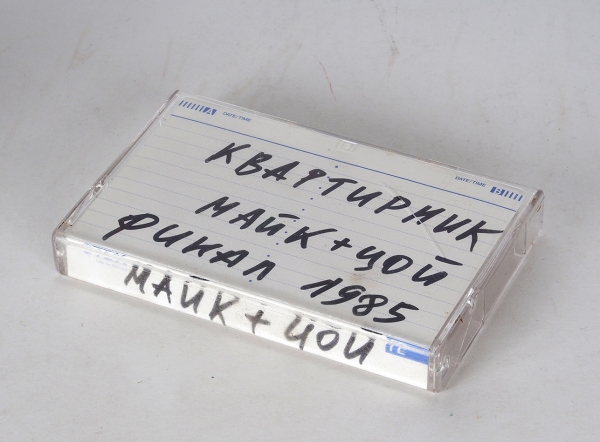 A DATE/TIME
DATE/TIME B
КВАРТИРНИК
МАЙК + ЦОЙ
ФИНАЛ 1985
МАЙК + ЦОЙ